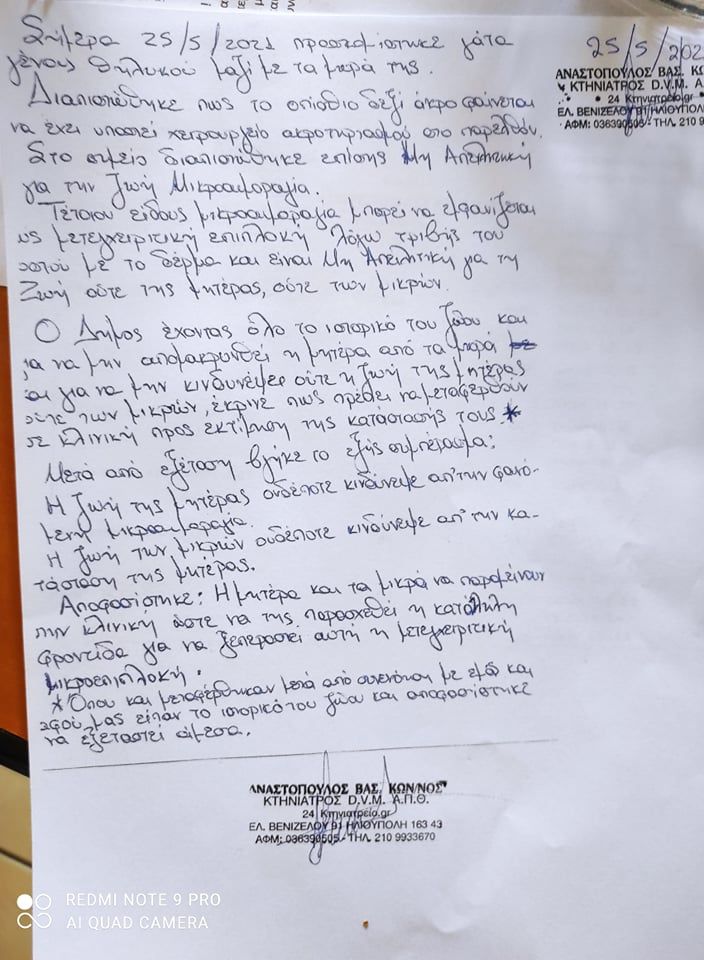 Σήμερα 25/5/2021 προσκομίστηκε γάτα
γένους θηλυκού μαζί με τα μικρά της.
Διαπιστώθηκε πως το οπίσθιο δεξί άκρο φαίνεται
να έχει υποστεί χειρουργείο ακρωτηριασμού στο παρελθόν.
Στο σημείο διαπιστώθηκε επίσης Μη Απειλητική
για την Ζωή Μικροαιμορραγία.
Τέτοιου είδους μικροαιμορραγία μπορεί να εμφανίζεται
ως μετεγχειριτική επιπλοκή λόγω τριβής του
οστού με το δέρμα και είναι Μη Απειλητική για τη
Ζωή ούτε της μητέρας, ούτε των μικρών.
Ο Δήμος έχοντας όλο το ιστορικό του ζώου και
για να μην απομακρυνθεί η μητέρα από τα μικρά
και για να μην κινδυνέψει ούτε η ζωή της μητέρας
ούτε των μικρών, έκρινε πως πρέπει να μεταφερθούν
σε κλινική προς εκτίμηση της κατάστασής τους. *
Μετά από εξέταση βγήκε το εξής συμπέρασμα:
Η ζωή της μητέρας ουδέποτε κινδύνεψε απ' την φαινό-
μενη μικροαιμορραγία.
Η ζωή των μικρών ουδέποτε κινδύνεψε απ' την κα-
τάσταση της μητέρας.
Αποφασίστηκε: Η μητέρα και τα μικρά να παραμείνουν
στην κλινική ώστε να της παρασχεθεί η κατάλληλη
φροντίδα για να ξεπεραστεί αυτή η μετεγχειριτική
μικροεπιπλοκή.
* Όπου και μεταφέρθηκαν μετά από συνεννόηση με εμάς και
αφού μας είπαν το ιστορικό του ζώου και αποφασίστηκε
να εξεταστεί άμεσα.
25/5/202
ΑΝΑΣΤΟΠΟΥΛΟΣ ΒΑΣ. Κ
ΚΤΗΝΙΑΤΡΟΣ D.V.M. Α
24 Κτηνιατρείο.gr
ΕΛ. ΒΕΝΙΖΕΛΟΥ 91 ΗΛΙΟΥΠΟΛ
ΑΦΜ: 036390505 - ΤΗΛ. 210 9
ΑΝΑΣΤΟΠΟΥΛΟΣ ΒΑΣ. ΚΩΝ/ΝΟΣ
ΚΤΗΝΙΑΤΡΟΣ D.V.M. Α.Π.Θ.
24 Κτηνιατρείο.gr
ΕΛ. ΒΕΝΙΖΕΛΟΥ 91 ΗΛΙΟΥΠΟΛΗ 163 43
ΑΦΜ: 036390505 - ΤΗΛ. 210 9933670
REDMI NOTE 9 PRO
AI QUAD CAMERA